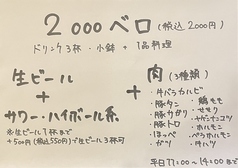 2000ベロ (税込2000円)
ドリンク3杯・小鉢+1品料理
生ビール
+
サワー・ハイボール系
※生ビール1杯まで
+500円(税込550円)で生ビール3杯可
+
肉(3種類)
・牛バラカルビ
・豚タン
・豚サガリ
・豚トロ
・ほっぺ
・ガツ
・鶏モモ
・せせり
・ヤゲンナンコツ
・ホルモン
・ペラホルモン
・牛ハツ
平日17:00~19:00まで